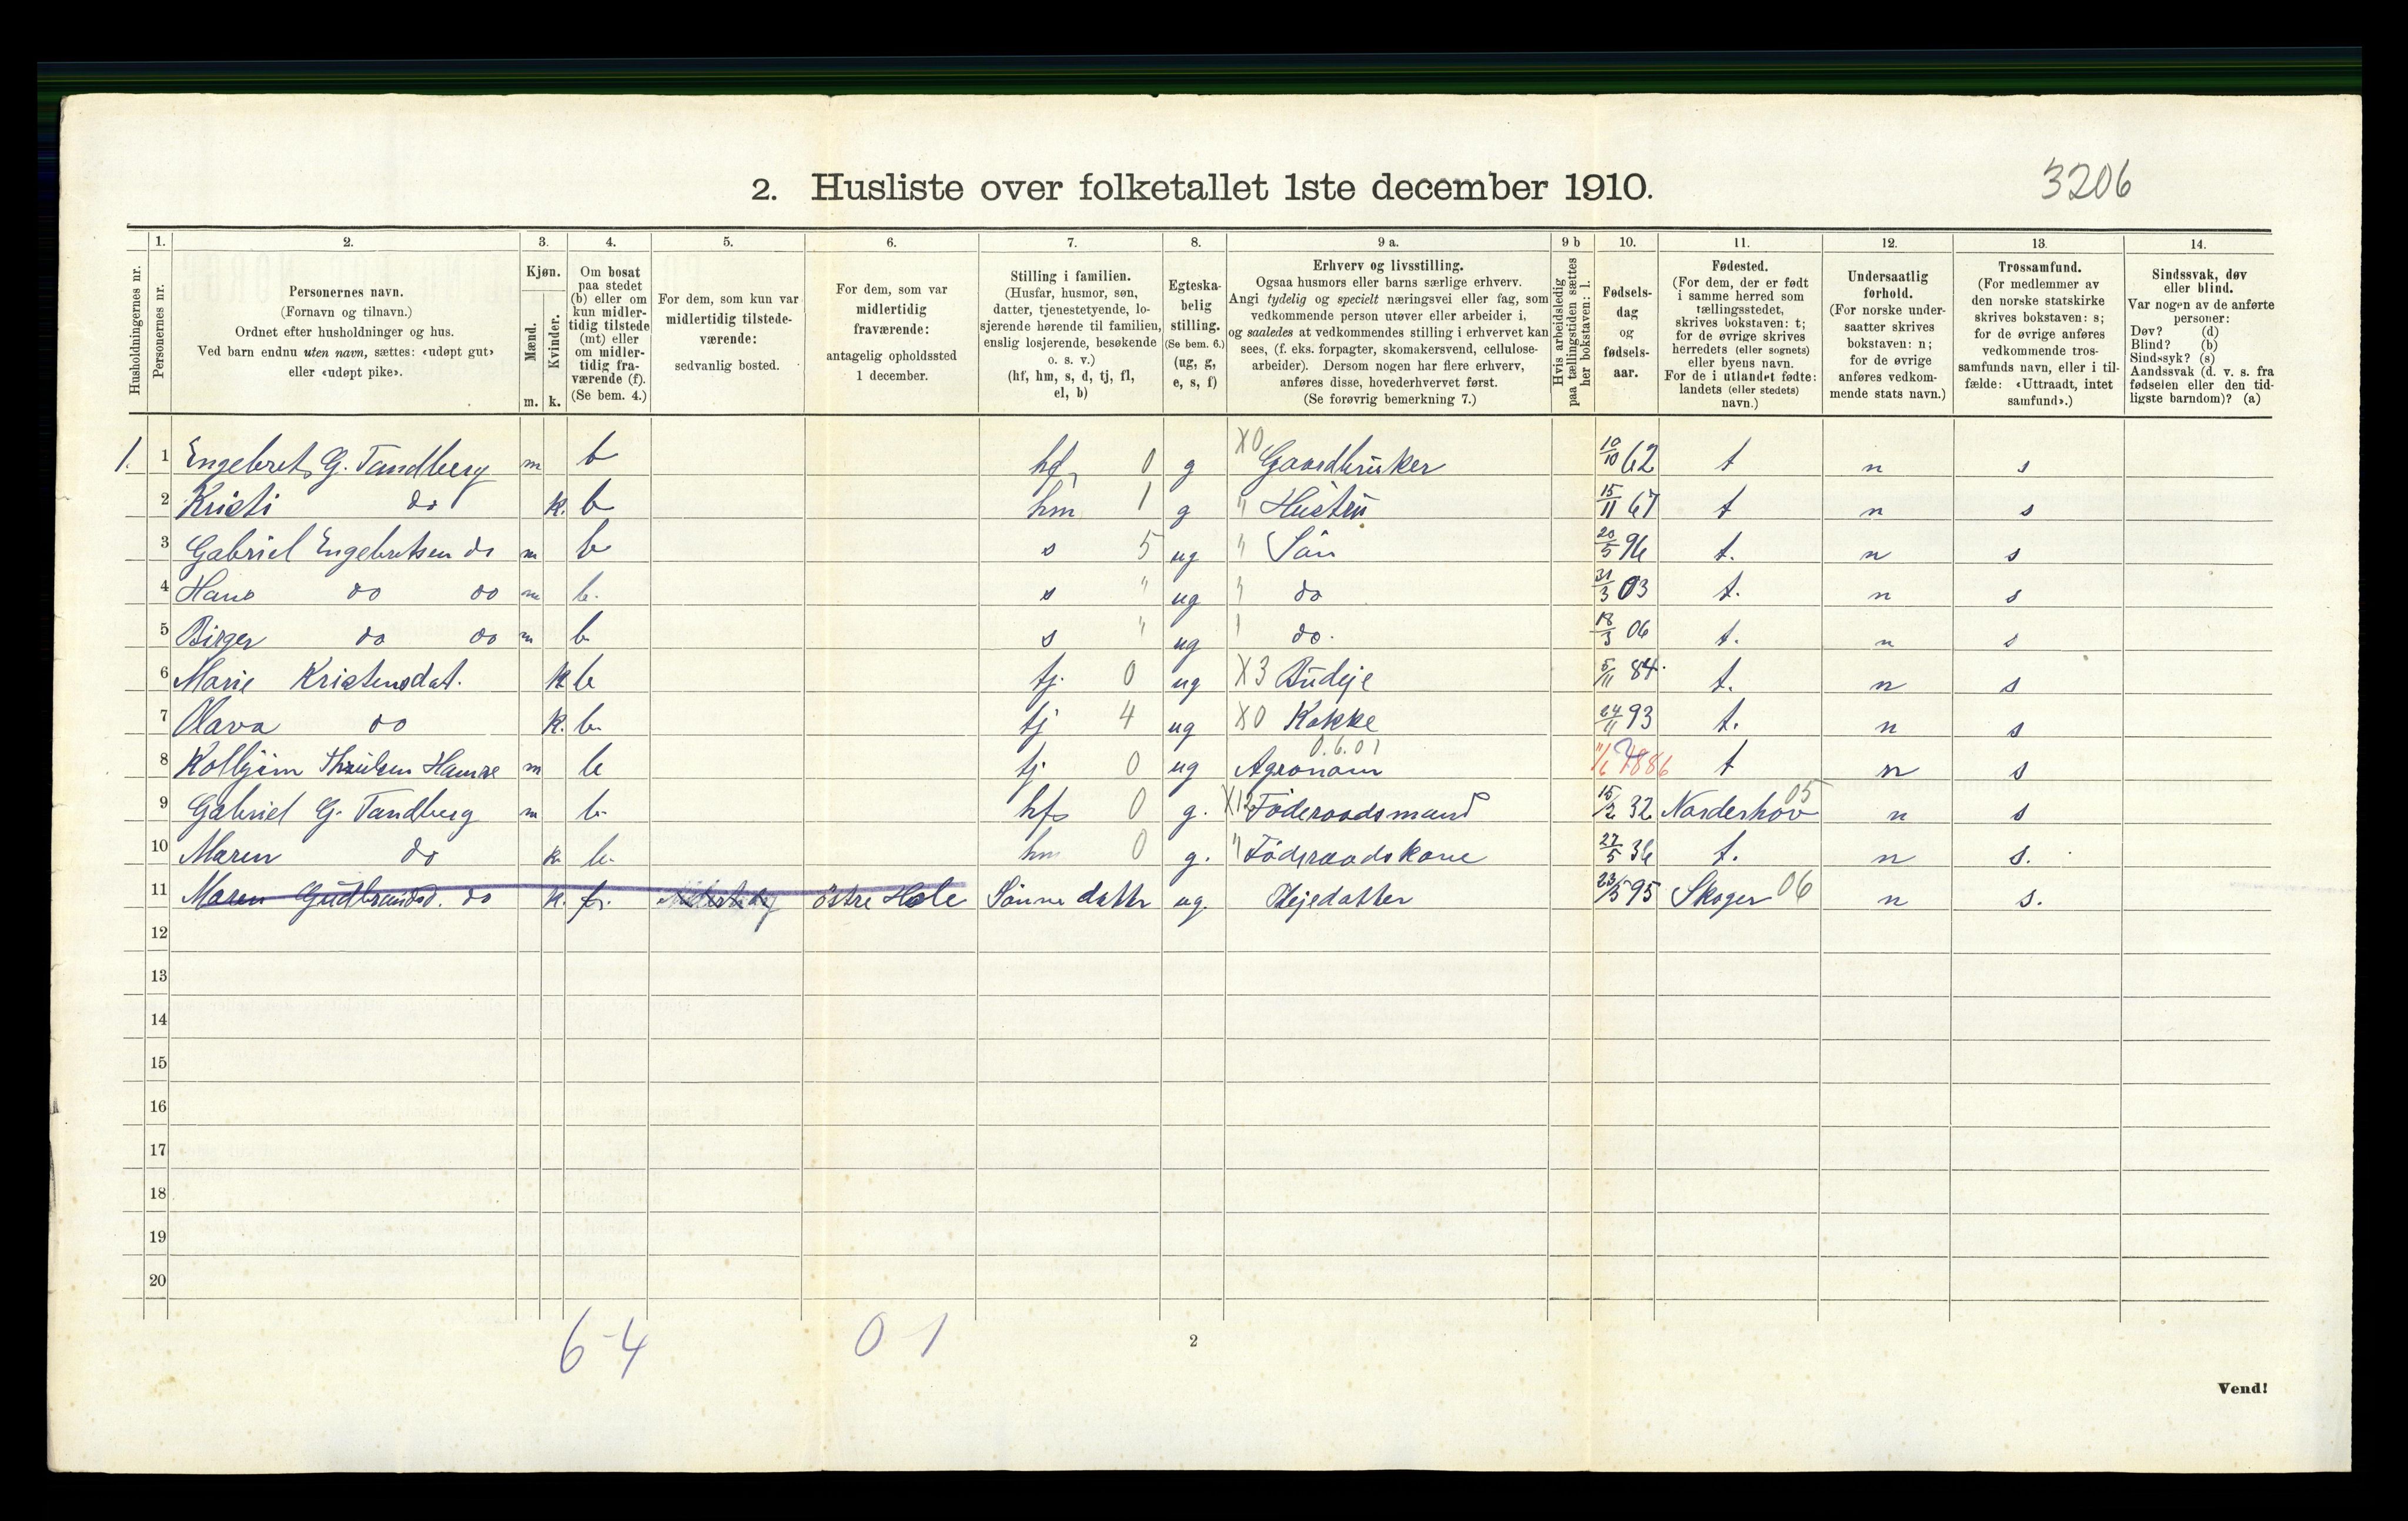 3206
2. Husliste over folketallet 1ste december 1910.
Husholdningernes nr.
1. Personernes nr.
2. Personernes navn. (Fornavn og tilnavn.) Ordnet efter husholdninger og hus. Ved barn endnu uten navn, sættes: «udøpt gut» eller «udøpt pike».
3. Kjøn. Mænd. m. Kvinder. k.
4. Om bosat paa stedet (b) eller om kun midlertidig tilstede (mt) eller om midlertidig fraværende (f). (Se bem. 4.)
5. For dem, som kun var midlertidig tilstedeværende: sedvanlig bosted.
6. For dem, som var midlertidig fraværende: antagelig opholdssted 1 december.
7. Stilling i familien. (Husfar, husmor, søn, datter, tjenestetyende, losjerende hørende til familien, enslig losjerende, besøkende o. s. v.) (hf, hm, s, d, tj, fl, el, b)
8. Egteskabelig stilling. (Se bem. 6.) (ug, g, e, s, f)
9 a. Erhverv og livsstilling. Ogsaa husmors eller barns særlige erhverv. Angi tydelig og specielt næringsvei eller fag, som vedkommende person utøver eller arbeider i, og saaledes at vedkommendes stilling i erhvervet kan sees, (f. eks. forpagter, skomakersvend, cellulosearbeider). Dersom nogen har flere erhverv, anføres disse, hovederhvervet først. (Se forøvrig bemerkning 7.)
9 b Hvis arbeidsledig paa tællingstiden sættes her bokstaven: l.
10. Fødselsdag og fødselsaar.
11. Fødested. (For dem, der er født i samme herred som tællingsstedet, skrives bokstaven: t; for de øvrige skrives herredets (eller sognets) eller byens navn. For de i utlandet fødte: landets (eller stedets) navn.)
12. Undersaatlig forhold. (For norske undersaatter skrives bokstaven: n; for de øvrige anføres vedkommende stats navn.)
13. Trossamfund. (For medlemmer av den norske statskirke skrives bokstaven: s; for de øvrige anføres vedkommende trossamfunds navn, eller i tilfælde: «Uttraadt, intet samfund».)
14. Sindssvak, døv eller blind. Var nogen av de anførte personer: Døv? (d) Blind? (b) Sindssyk? (s) Aandssvak (d. v. s. fra fødselen eller den tidligste barndom)? (a)
1. 1 Engebret G. Tandberg m b hf 0 g X0 Gaardbruker 10/10 62 t n s
2 Kristi do k. b hm 1 g " Hustru 15/11 67 t n s
3 Gabriel Engebretsen do m b s 5 ug " Sön 20/5 96 t. n s
4 Hans do do m b. s " ug " do 31/3 03 t. n s
5 Birger do do m b s " ug " do. 18/3 06 t. n s
6 Marie Kristensdat. k b tj. 0 ug X3 Budeje 5/11 84. t. n s
7 Olava do k. b. tj 4 ug X0 Kokke 24/11 93 t. n s
8 Kolbjörn Hamre m b tj. 0 ug 0.6.01 Agronom 11/6 1886 t n s
9 Gabriel G. Tandberg m b. hf 0 g. X12 Föderaadsmand 15/2 32 Norderhov 05 n s
10 Maren do k. b. hm 0 g. " Föderaadskone 27/5 36 t. n s.
11 Maren Gudbrandsd. do k. f. östre Hole Sönne datter ug. Plejedatter 23/5 95 Skoger 06 n s.
12
13
14
15
16
17
18
19
20
6-4 0-1
2
Vend!